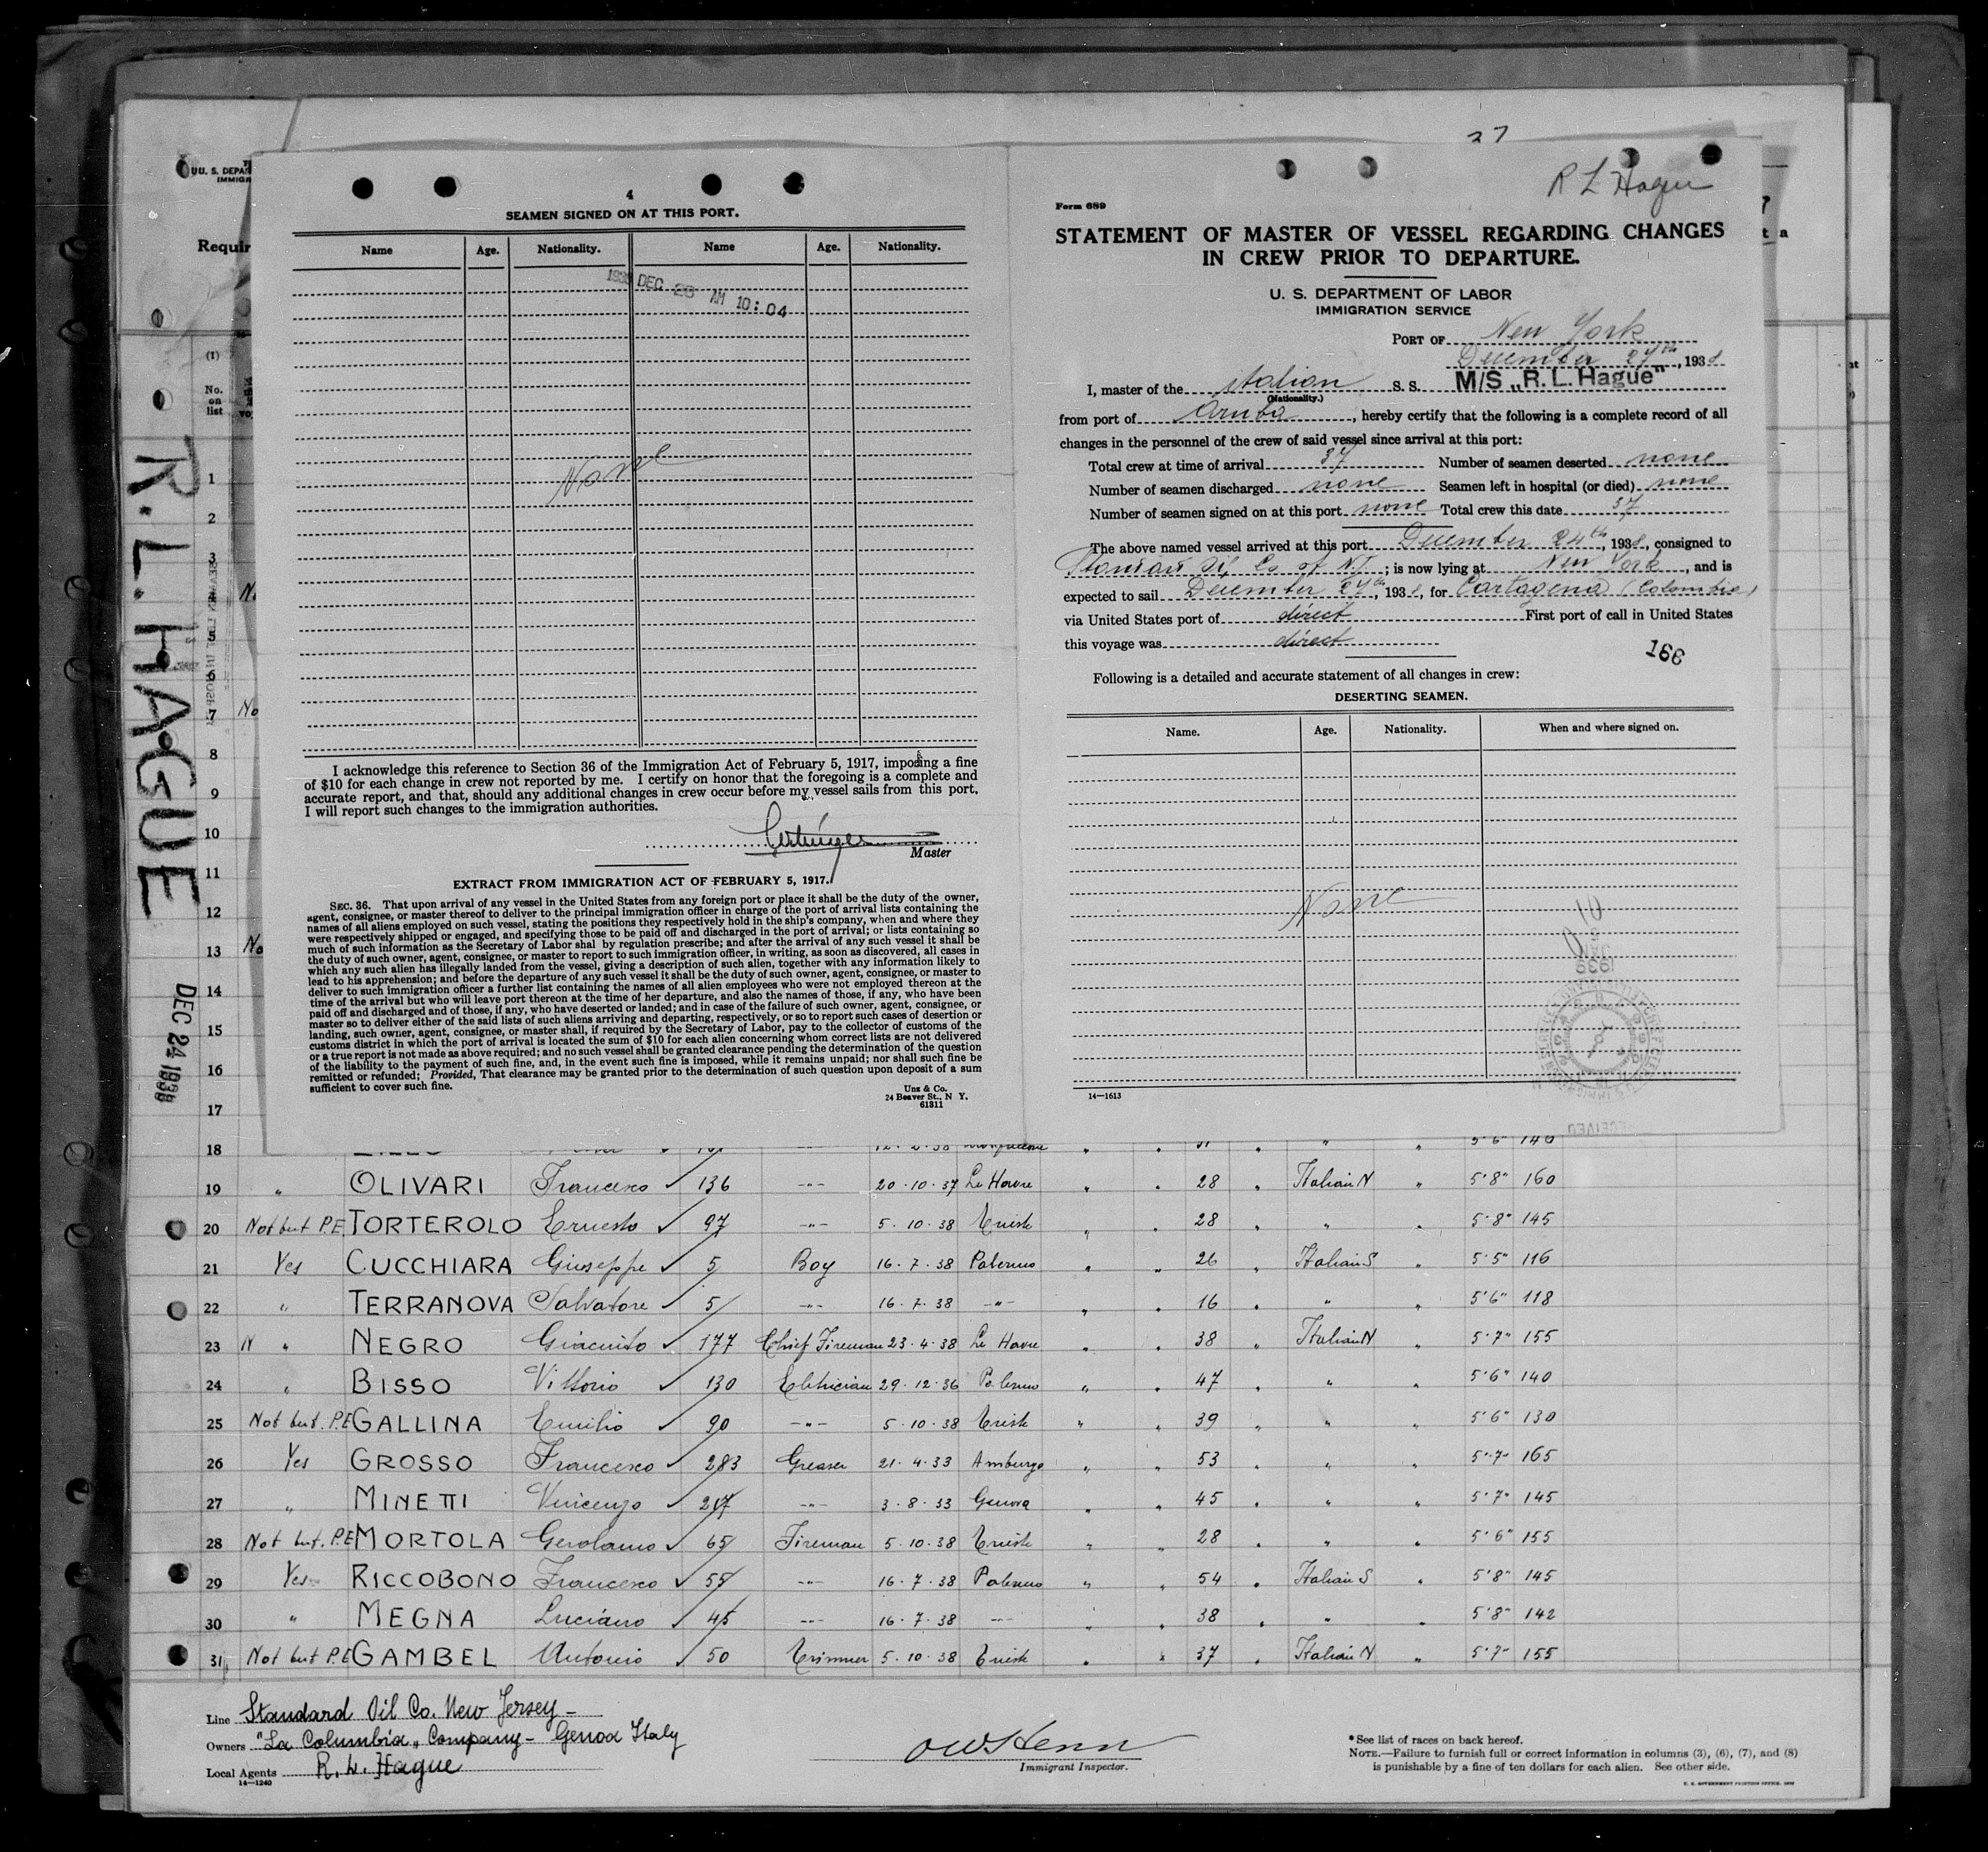 37
U. S. DEPA
IMMIGR
Requir
(1)
No.
on
list
R.L. HAGUE
DEC 24 1938
4
SEAMEN SIGNED ON AT THIS PORT.
Name Age. Nationality. Name Age. Nationality.
DEC 28 AM 10:04
None
I acknowledge this reference to Section 36 of the Immigration Act of February 5, 1917, imposing a fine
of $10 for each change in crew not reported by me. I certify on honor that the foregoing is a complete and
accurate report, and that, should any additional changes in crew occur before my vessel sails from this port,
I will report such changes to the immigration authorities.
Master
EXTRACT FROM IMMIGRATION ACT OF FEBRUARY 5, 1917.
SEC. 36. That upon arrival of any vessel in the United States from any foreign port or place it shall be the duty of the owner,
agent, consignee, or master thereof to deliver to the principal immigration officer in charge of the port of arrival lists containing the
names of all aliens employed on such vessel, stating the positions they respectively hold in the ship's company, when and where they
were respectively shipped or engaged, and specifying those to be paid off and discharged in the port of arrival; or lists containing so
much of such information as the Secretary of Labor shal by regulation prescribe; and after the arrival of any such vessel it shall be
the duty of such owner, agent, consignee, or master to report to such immigration officer, in writing, as soon as discovered, all cases in
which any such alien has illegally landed from the vessel, giving a description of such alien, together with any information likely to
lead to his apprehension; and before the departure of any such vessel it shall be the duty of such owner, agent, consignee, or master to
deliver to such immigration officer a further list containing the names of all alien employees who were not employed thereon at the
time of the arrival but who will leave port thereon at the time of her departure, and also the names of those, if any, who have been
paid off and discharged and of those, if any, who have deserted or landed; and in case of the failure of such owner, agent, consignee, or
master so to deliver either of the said lists of such aliens arriving and departing, respectively, or so to report such cases of desertion or
landing, such owner, agent, consignee, or master shall, if required by the Secretary of Labor, pay to the collector of customs of the
customs district in which the port of arrival is located the sum of $10 for each alien concerning whom correct lists are not delivered
or a true report is not made as above required; and no such vessel shall be granted clearance pending the determination of the question
of the liability to the payment of such fine, and, in the event such fine is imposed, while it remains unpaid; nor shall such fine be
remitted or refunded; Provided, That clearance may be granted prior to the determination of such question upon deposit of a sum
sufficient to cover such fine.
Unz & Co.
24 Beaver St., N Y.
61311
R L Hague
Form 689
STATEMENT OF MASTER OF VESSEL REGARDING CHANGES
IN CREW PRIOR TO DEPARTURE.
U. S. DEPARTMENT OF LABOR
IMMIGRATION SERVICE
PORT OF New York
December 27th, 1938
I, master of the italian S. S. M/S „R. L. Hague"
(Nationality.)
from port of Aruba, hereby certify that the following is a complete record of all
changes in the personnel of the crew of said vessel since arrival at this port:
Total crew at time of arrival 37 Number of seamen deserted none
Number of seamen discharged none Seamen left in hospital (or died) none
Number of seamen signed on at this port none Total crew this date 37
The above named vessel arrived at this port December 24th, 1938, consigned to
Oil Co of NJ; is now lying at New York, and is
expected to sail December 27th, 1938, for Cartagena (Colombia)
via United States port of direct First port of call in United States
this voyage was direct
166
Following is a detailed and accurate statement of all changes in crew:
DESERTING SEAMEN.
Name. Age. Nationality. When and where signed on.
None
14—1613
1
2
3
5
6
7 No
8
9
10
11
12
13 No
14
15
16
17
18 5'6" 140
19 " OLIVARI Francesco 136 -"- 20.10.37 Le Havre " " 28 " Italian N " 5'8" 160
20 Not but P.E. TORTEROLO Ernesto 97 -"- 5.10.38 Trieste " " 28 " " " 5'8" 145
21 Yes CUCCHIARA Giuseppe 5 Boy 16.7.38 Palermo " " 26 " Italian S " 5'5" 116
22 " TERRANOVA Salvatore 5 -"- 16.7.38 -"- " " 16 " " " 5'6" 118
23 N " NEGRO Giacinto 177 Chief Fireman 23.4.38 Le Havre " " 38 " Italian N " 5'7" 155
24 " BISSO Vittorio 130 Eletrician 29.12.36 Palermo " " 47 " " " 5'6" 140
25 Not but. P.E GALLINA Emilio 90 -"- 5.10.38 Trieste " " 39 " " " 5'6" 130
26 Yes GROSSO Francesco 283 Greaser 21.4.33 Amburgo " " 53 " " " 5'7" 165
27 " MINETTI Vincenzo 217 -"- 3.8.33 Genova " " 45 " " " 5'7" 145
28 Not but. P.E MORTOLA Gerolamo 65 Fireman 5.10.38 Trieste " " 28 " " " 5'6" 155
29 Yes RICCOBONO Francesco 55 -"- 16.7.38 Palermo " " 54 " Italian S " 5'8" 145
30 " MEGNA Luciano 45 -"- 16.7.38 -"- " " 38 " " " 5'8" 142
31 Not but P.E GAMBEL Antonio 50 Trimmer 5.10.38 Trieste " " 37 " Italian N " 5'7" 155
Line Standard Oil Co. New Jersey -
Owners "La Columbia" Company - Genoa Italy
Local Agents R. L. Hague
14—1240
Immigrant Inspector.
*See list of races on back hereof.
NOTE.—Failure to furnish full or correct information in columns (3), (6), (7), and (8)
is punishable by a fine of ten dollars for each alien. See other side.
U. S. GOVERNMENT PRINTING OFFICE